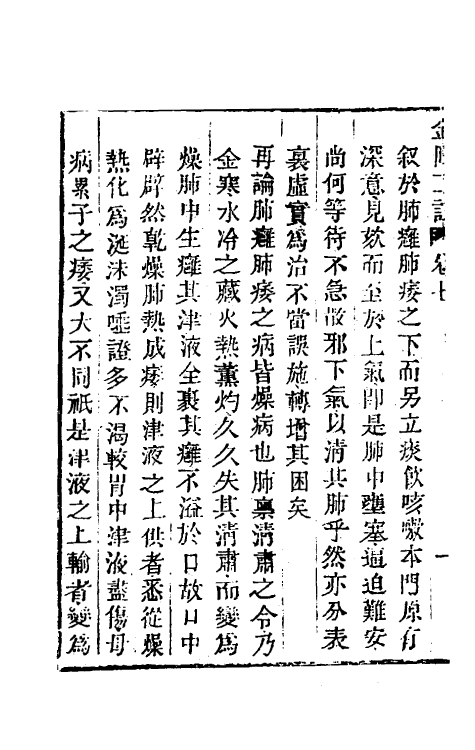 敘於肺癰肺痿之下而另立痰飲咳嗽本門原有
深意見欬而至於上氣卽是肺中壅塞逼迫難安
尚何等待不急散邪下氣以清其肺乎然亦分表
裏虛實為治不當誤施轉增其困矣
再論肺癰肺痿之病皆燥病也肺稟清肅之令乃
金寒水冷之藏火熱薰灼久久失其清肅而變為
燥肺中生癰其津液全裹其癰不溢於口故口中
辟辟然乾燥肺熱成痿則津液之上供者悉從燥
熱化為涎沫濁唾證多不渴較胃中津液盡傷母
病累子之痿又大不同祇是津液之上輸者變為